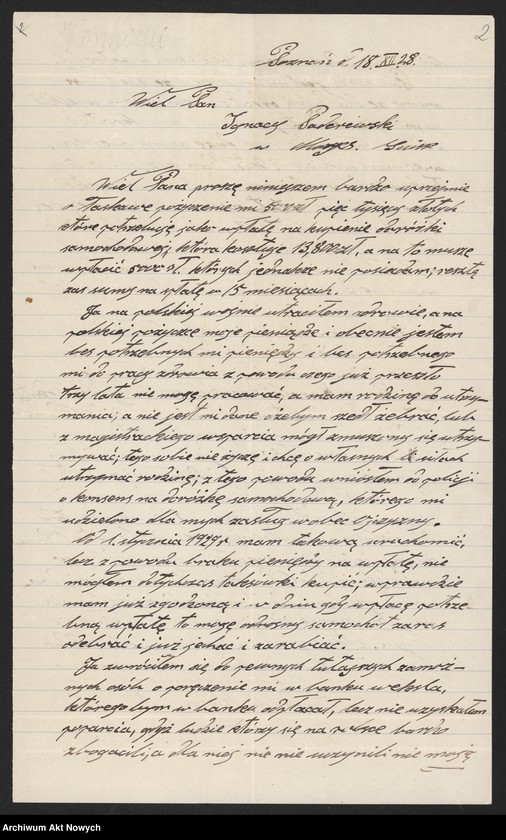 2
Poznań d. 18. XII 28.
Wiel Pan
Ignacy Paderewski
w Morges. Suisse
Wiel Pana proszę niniejszem bardzo uprzejmie
o łaskawe pożyczenie mi 5000 zł pięć tysięcy złotych
które potrzebuję jako wpłatę na kupienie dorożki
samochodowej, która kosztuje 13,800 zł, a na to muszę
wpłacić 5000 zł. których jednakże nie posiadam; resztę
zaś sumy na spłatę w 15 miesiącach.
Ja na polskiej wojnie utraciłem zdrowie, a na
polskiej pożyczce moje pieniądze i obecnie jestem
bez potrzebnych mi pieniędzy i bez potrzebnego
mi do pracy zdrowia z powodu czego już przeszło
trzy lata nie mogę pracować, a mam rodzinę do utrzy-
mania; a nie jest mi dane ażebym szedł żebrać, lub
z magistrackiego wsparcia mógł zmuszony się utrzy-
mywać; tego sobie nie życzę i chcę o własnych siłach
utrzymać rodzinę; z tego powodu wniosłem do policji
o konsens na dorożkę samochodową, którego mi
udzielono dla mych zasług wobec Ojczyzny.
Od 1. stycznia 1929 r mam takową uruchomić,
lecz z powodu braku pieniędzy na wpłatę, nie
mogłem dotychczas taksówki kupić; wprawdzie
mam już zgodzoną i w dniu gdy wpłacę potrze
bną wpłatę to mogę odnośny samochód zaraz
odebrać i już jechać i zarabiać.
Ja zwróciłem się do pewnych tutajszych zamoż-
nych osób o poręczenie mi w banku weksla,
którego bym w banku odpłacał, lecz nie uzyskałem
poparcia, gdyż ludzie którzy się na Polsce bardo
zbogacili, a dla niej nic nie uczynili nie mogą
Archiwum Akt Nowych